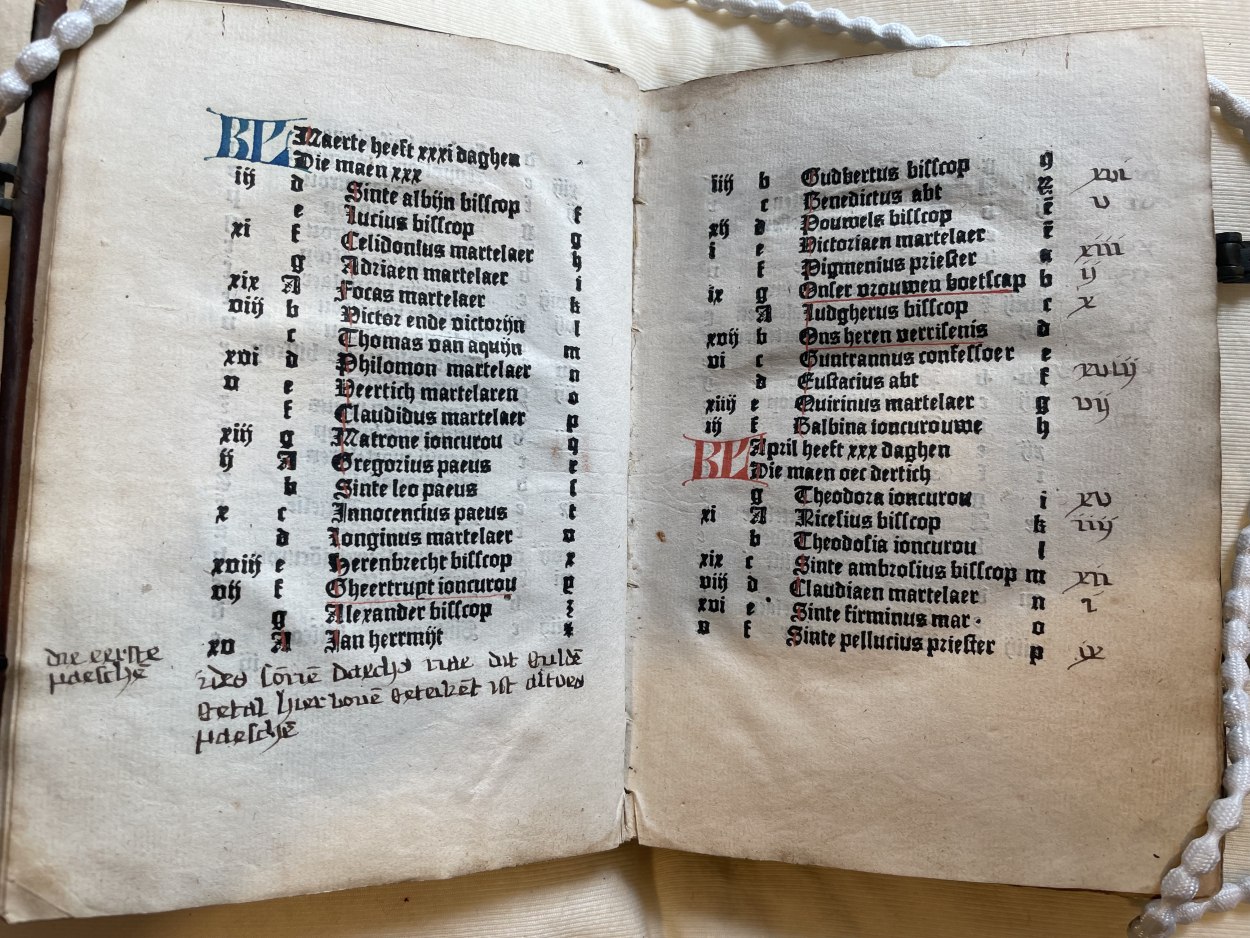 KL Maerte heeft xxxi daghen
Die maen xxx
iij d Sinte albijn bisscop f
e Lucius bisscop g
xi f Celidonius martelaer h
g Adriaen martelaer i
xix A Focas martelaer k
viij b Victor ende victorijn l
c Thomas van aquijn m
xvi d Philomon martelaer n
v e Veertich martelaren o
f Claudidus martelaer p
xiij g Matrone ioncurou q
ij A Gregorius paeus r
b Sinte leo paeus s
x c Innocencius paeus t
d Longinus martelaer v
xviij e Herenbrecht bisscop x
vij f Gheertrupt ioncurou y
g Alexander bisscop z
xv A Jan herrmijt
die eerste
paeschē
des sōnē daechs nae dit guldē
getal hier bouē geteikēt ist altoes
paeschē
iiij b Gudbertus bisscop 9 xvi
c Benedictus abt v
xij d Pouwels bisscop
i e Victoriaen martelaer xiii
f Pigmenius priester a ij
ix g Onser vrouwen boetscap b x
A Ludgherus bisscop c
xvij b Ons heren verrisenis d
vi c Guntrannus confessoer e xviij
d Eustacius abt f
xiiij e Quirinus martelaer g vij
iij f Balbina ioncurouwe h
KL April heeft xxx daghen
Die maen oec dertich
g Theodora ioncurou i xv
xi A Nicesius bisscop k iiij
b Theodosia ioncurou l
xix c Sinte ambrosius bisscop m xii
viij d Claudiaen martelaer n i
xvi e Sinte firminus mar· o
v f Sinte pellucius priester p ix